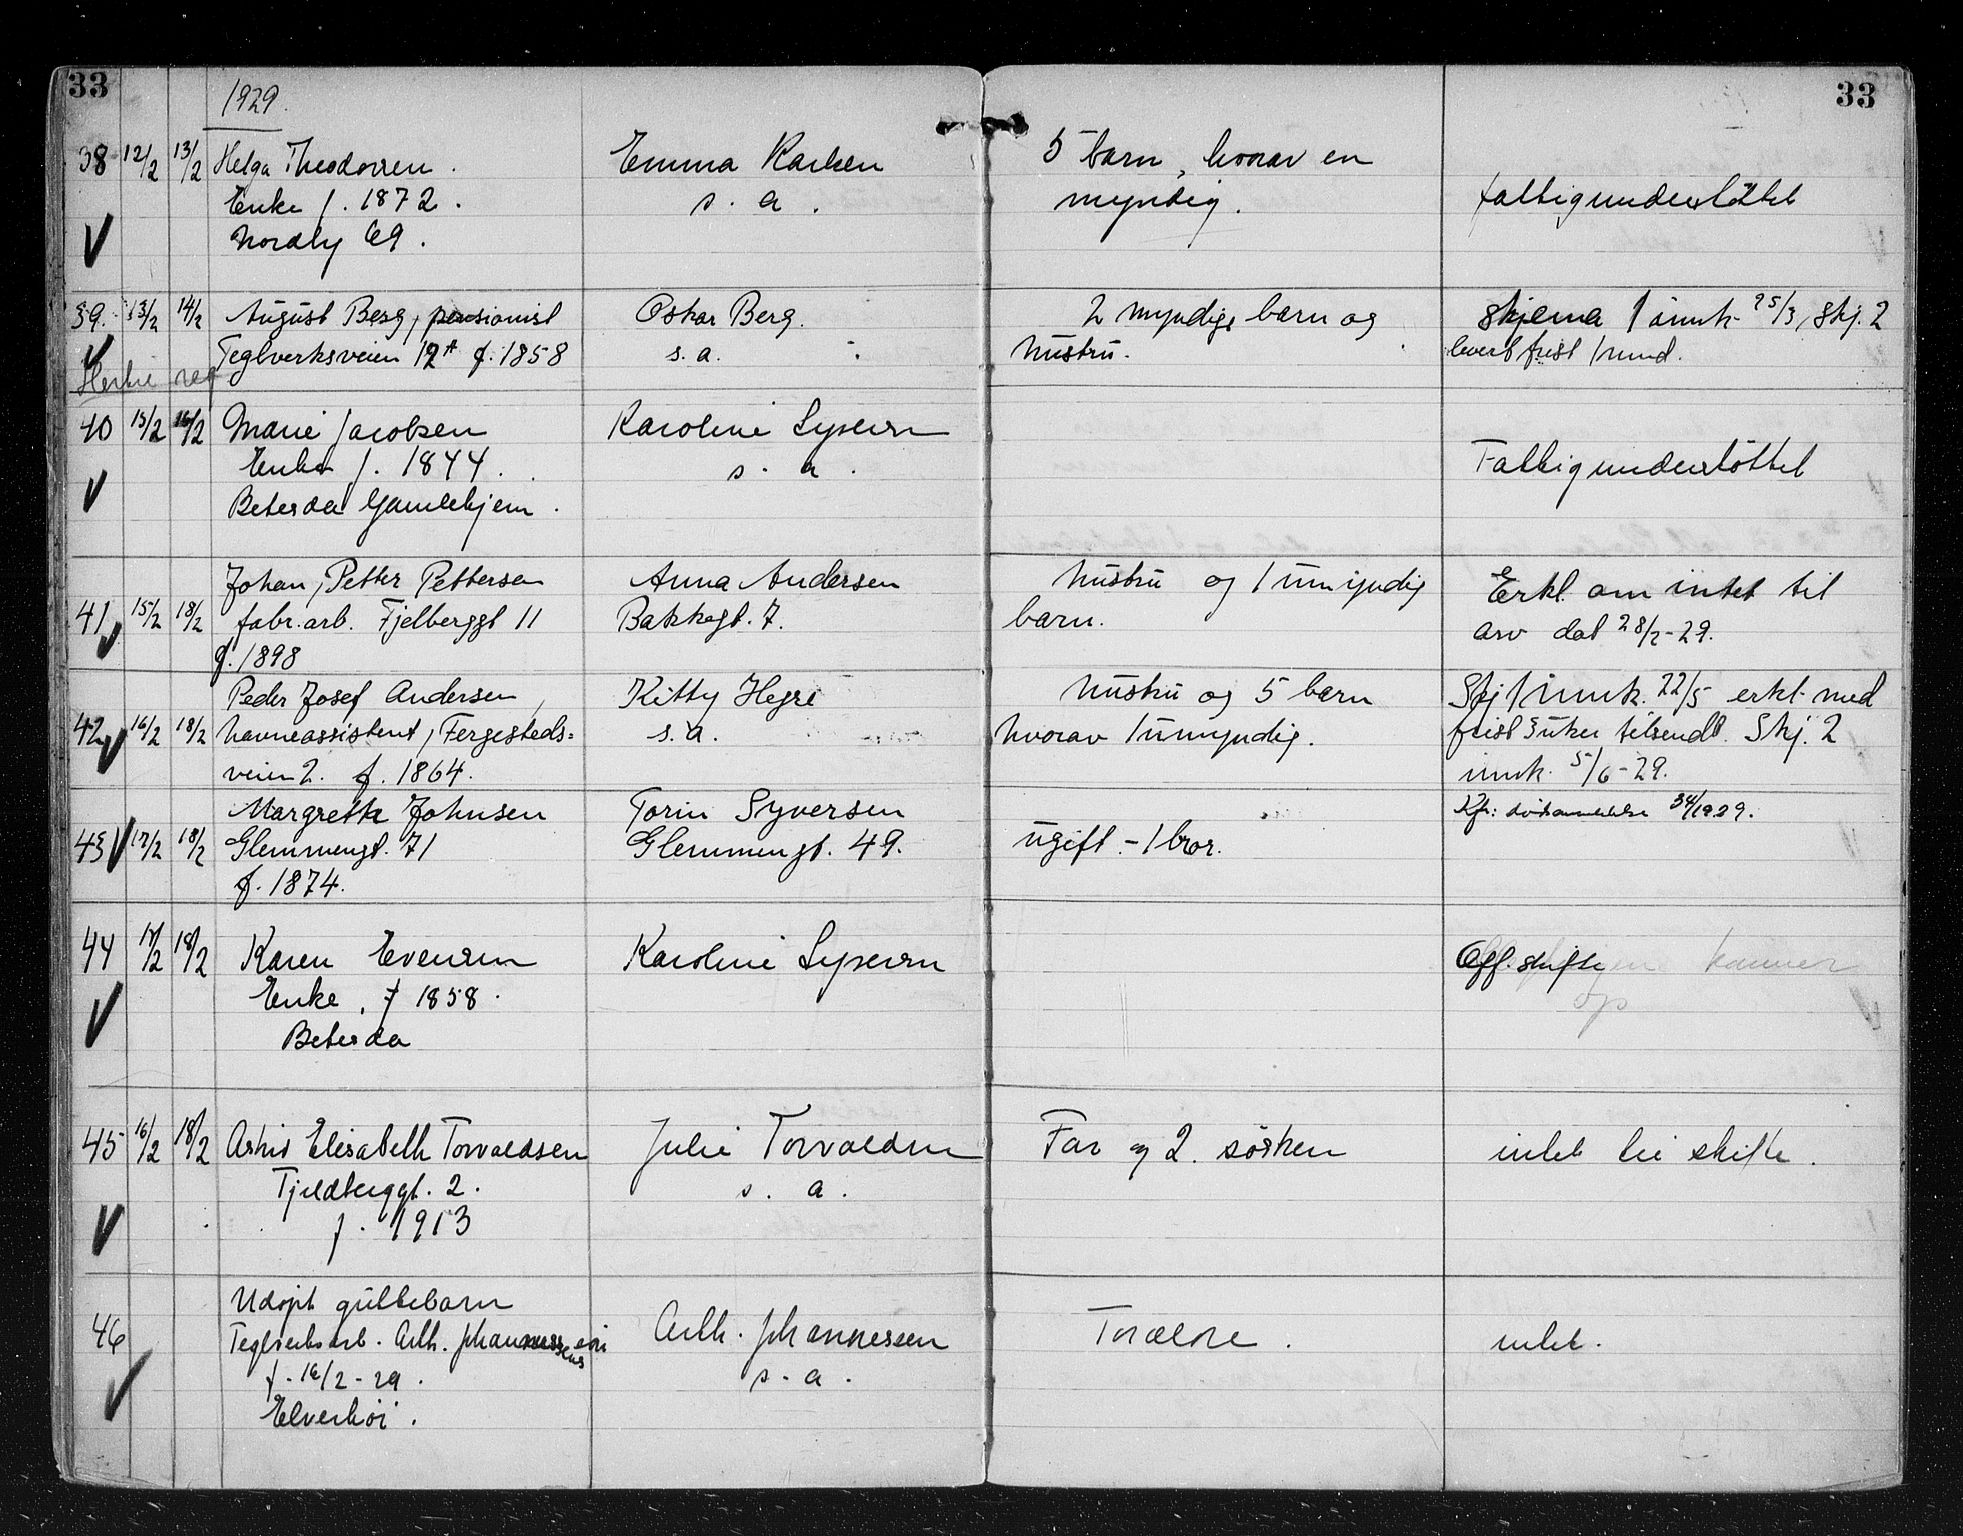 33
33
1929.
38 12/2 13/2 Helga Theodorsen.
Enke f. 1872.
Nordly 69.
Emma Karlsen
s. a.
5 barn, hvorav en
myndig.
fattigunderstöttet
39. 13/2 14/2 August Berg, pensionist
Teglverksveien 12A f. 1858
Oskar Berg.
s.a.
2 myndige barn og
hustru.
skjema 1 innk. 25/3, skj. 2
levert frist 1 mnd.
40 15/2 16/2 Marie Jacobsen
Enke f. 1844.
Betesda Gamlehjem.
Karoline Syversen
s. a.
Fattigunderstöttet
41 15/2 18/2 Johan Petter Pettersen
fabr.arb. Fjelberggt 11
f. 1898
Anna Andersen
Bakkegt. 7.
hustru og 1 umyndig
barn.
Erkl. om intet til
arv dat 28/2-29.
42 16/2 18/2 Peder Josef Andersen,
havneassistent, Fergesteds=
veien 2. f. 1864.
Kitty Hegre
s.a.
hustru og 5 barn
hvorav 1 umyndig.
Skj 1 innk. 22/5 erkl. med
frist 3 uker tilsendt. Skj. 2
innk. 5/6-29.
43 17/2 18/2 Margrethe Johnsen
Glemmengt. 71
f. 1874.
Torin Syversen
Glemmengt. 49.
ugift - 1 bror.
Kfr: dödsanmeldelse 34/1929.
44 17/2 18/2 Karen Evensen
Enke, f 1858.
Betesda
Karoline Syversen
Off. skifte
45 16/2 18/2 Astrid Elisabeth Torvaldsen
Fjeldberggt. 2.
f. 1913
Julie Torvaldsen
s. a.
Far og 2 sösken
intet til skifte.
46
Udöpt guttebarn
Teglverksarb. Arth. Johannessens
f. 16/2-29.
Elverhöi.
Arth. Johannessen
s. a.
Forældre.
intet.